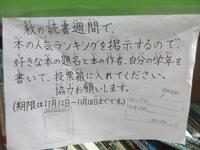 秋の読書週間で、
本の人気ランキングを掲示するので、
好きな本の題名と本の作者、自分の学年を
書いて、投票箱に入れてください。
協力お願いします。
(期限は11月12日~11月18日までです。)